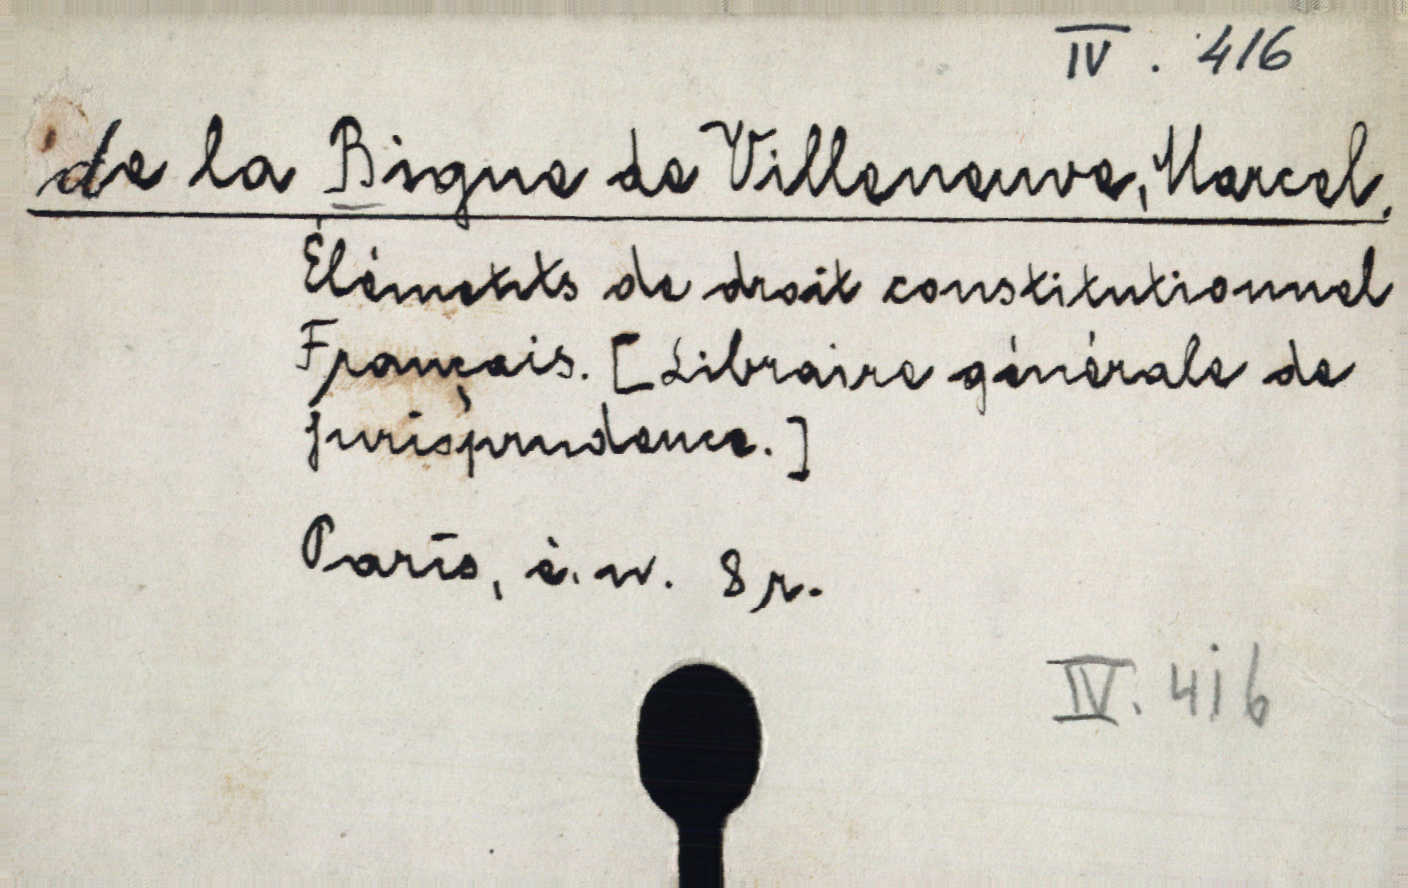 IV. 416
de la Bigne de Villeneuve, Marcel.
Éléments de droit constitutionnel
Français. [Libraire générale de
jurisprudence.]
Paris, é. n. 8 r.
IV. 416